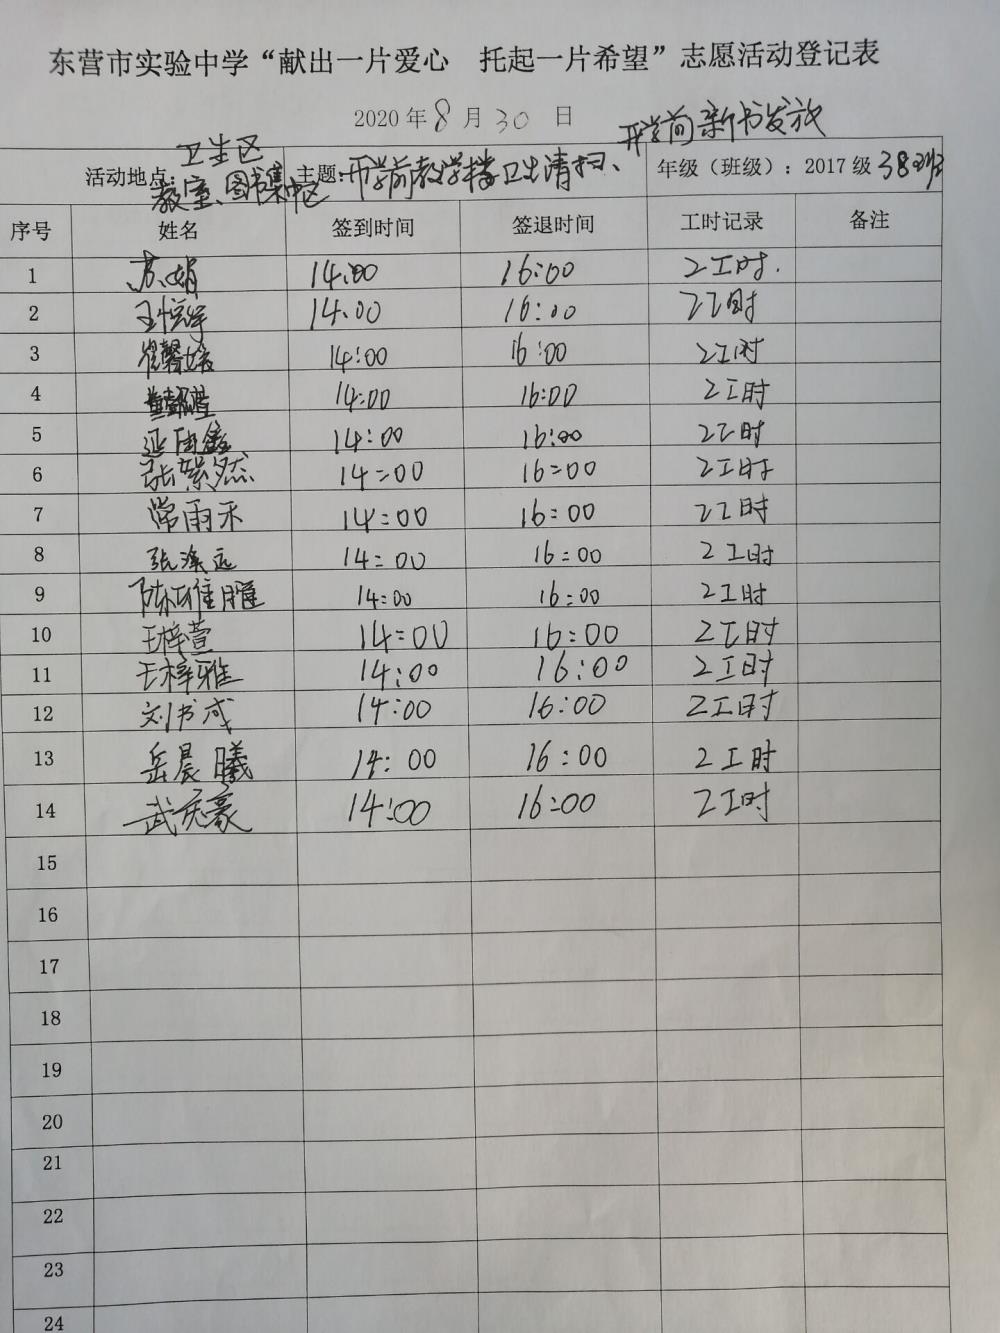 东营市实验中学“献出一片爱心 托起一片希望”志愿活动登记表
2020年8月30日
活动地点: 卫生区 教室、图书集中区 主题: 开学前教学楼卫生清扫、开学前新书发放 年级（班级）: 2017级38班
序号 姓名 签到时间 签退时间 工时记录 备注
1 苏娟 14:00 16:00 2工时.
2 14:00 16:00 2工时
3 14:00 16:00 2工时
4 14:00 16:00 2工时
5 14:00 16:00 2工时
6 14:00 16:00 2工时
7 常雨禾 14:00 16:00 2工时
8 14:00 16:00 2工时
9 14:00 16:00 2工时
10 王梓萱 14:00 16:00 2工时
11 王梓雅 14:00 16:00 2工时
12 刘书成 14:00 16:00 2工时
13 岳晨曦 14:00 16:00 2工时
14 14:00 16:00 2工时
15
16
17
18
19
20
21
22
23
24